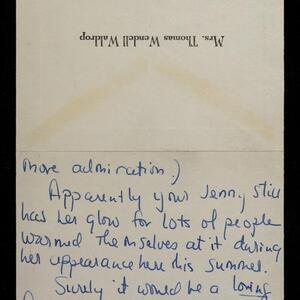 Mrs. Thomas Wendell Waldrop
more admiration.)
Apparently your Jenny still
has her glow for lots of people
warmed themselves at it during
her appearance here this summer.
Surely it would be a loving